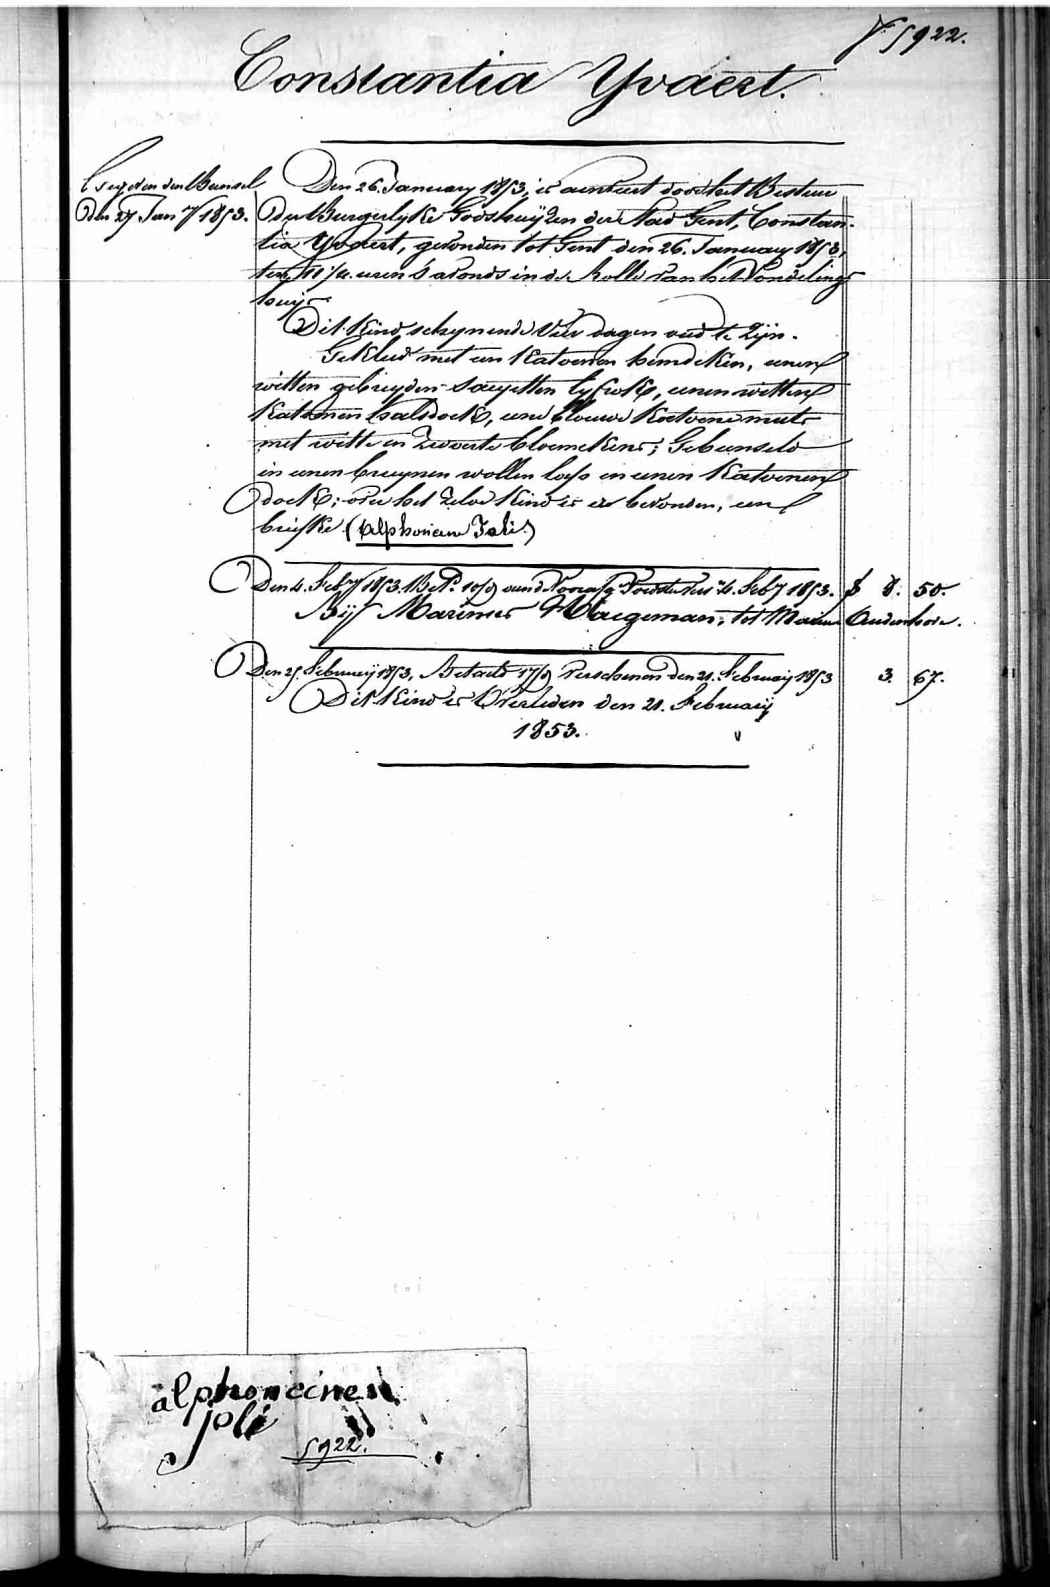 5922.
Constantia Yvaert.
Den 27 Jany 1853.
Den 26 January 1853, is aenveert door het Bestuer
der Burgerlyke Godshuijzen der Stad Gent, Constan-
tia Yvaert, gevonden tot Gent den 26. January 1853,
ten 11 uren 's avonds in de Rolle van het Vondeling
huijs.
Dit Kind schynende Vier dagen oud te Zijn.
Gekleed met een Katoenen hemdeken, eenen
witten gebreyden sayetten lyfrok, eenen witten
Katoenen halsdoek, eene blouwe Katoene muts
met witte en Zwarte bloemekens; Gebunseld
in eenen bruynen wollen en eenen Katoenen
doek; over het Zelve Kind is er bevonden, een
briefke (Alphoncienen Joli.)
Den 4. Feby 1853. 4 Feby 1853. f 8. 50.
Bij Marinus Waegeman, tot Audenhove.
Den 25 February 1853, Betaeld verschenen den 21. February 1853 3. 67.
Dit Kind is Overleden den 21. February
1853.
alphoncinen
joli
5922.